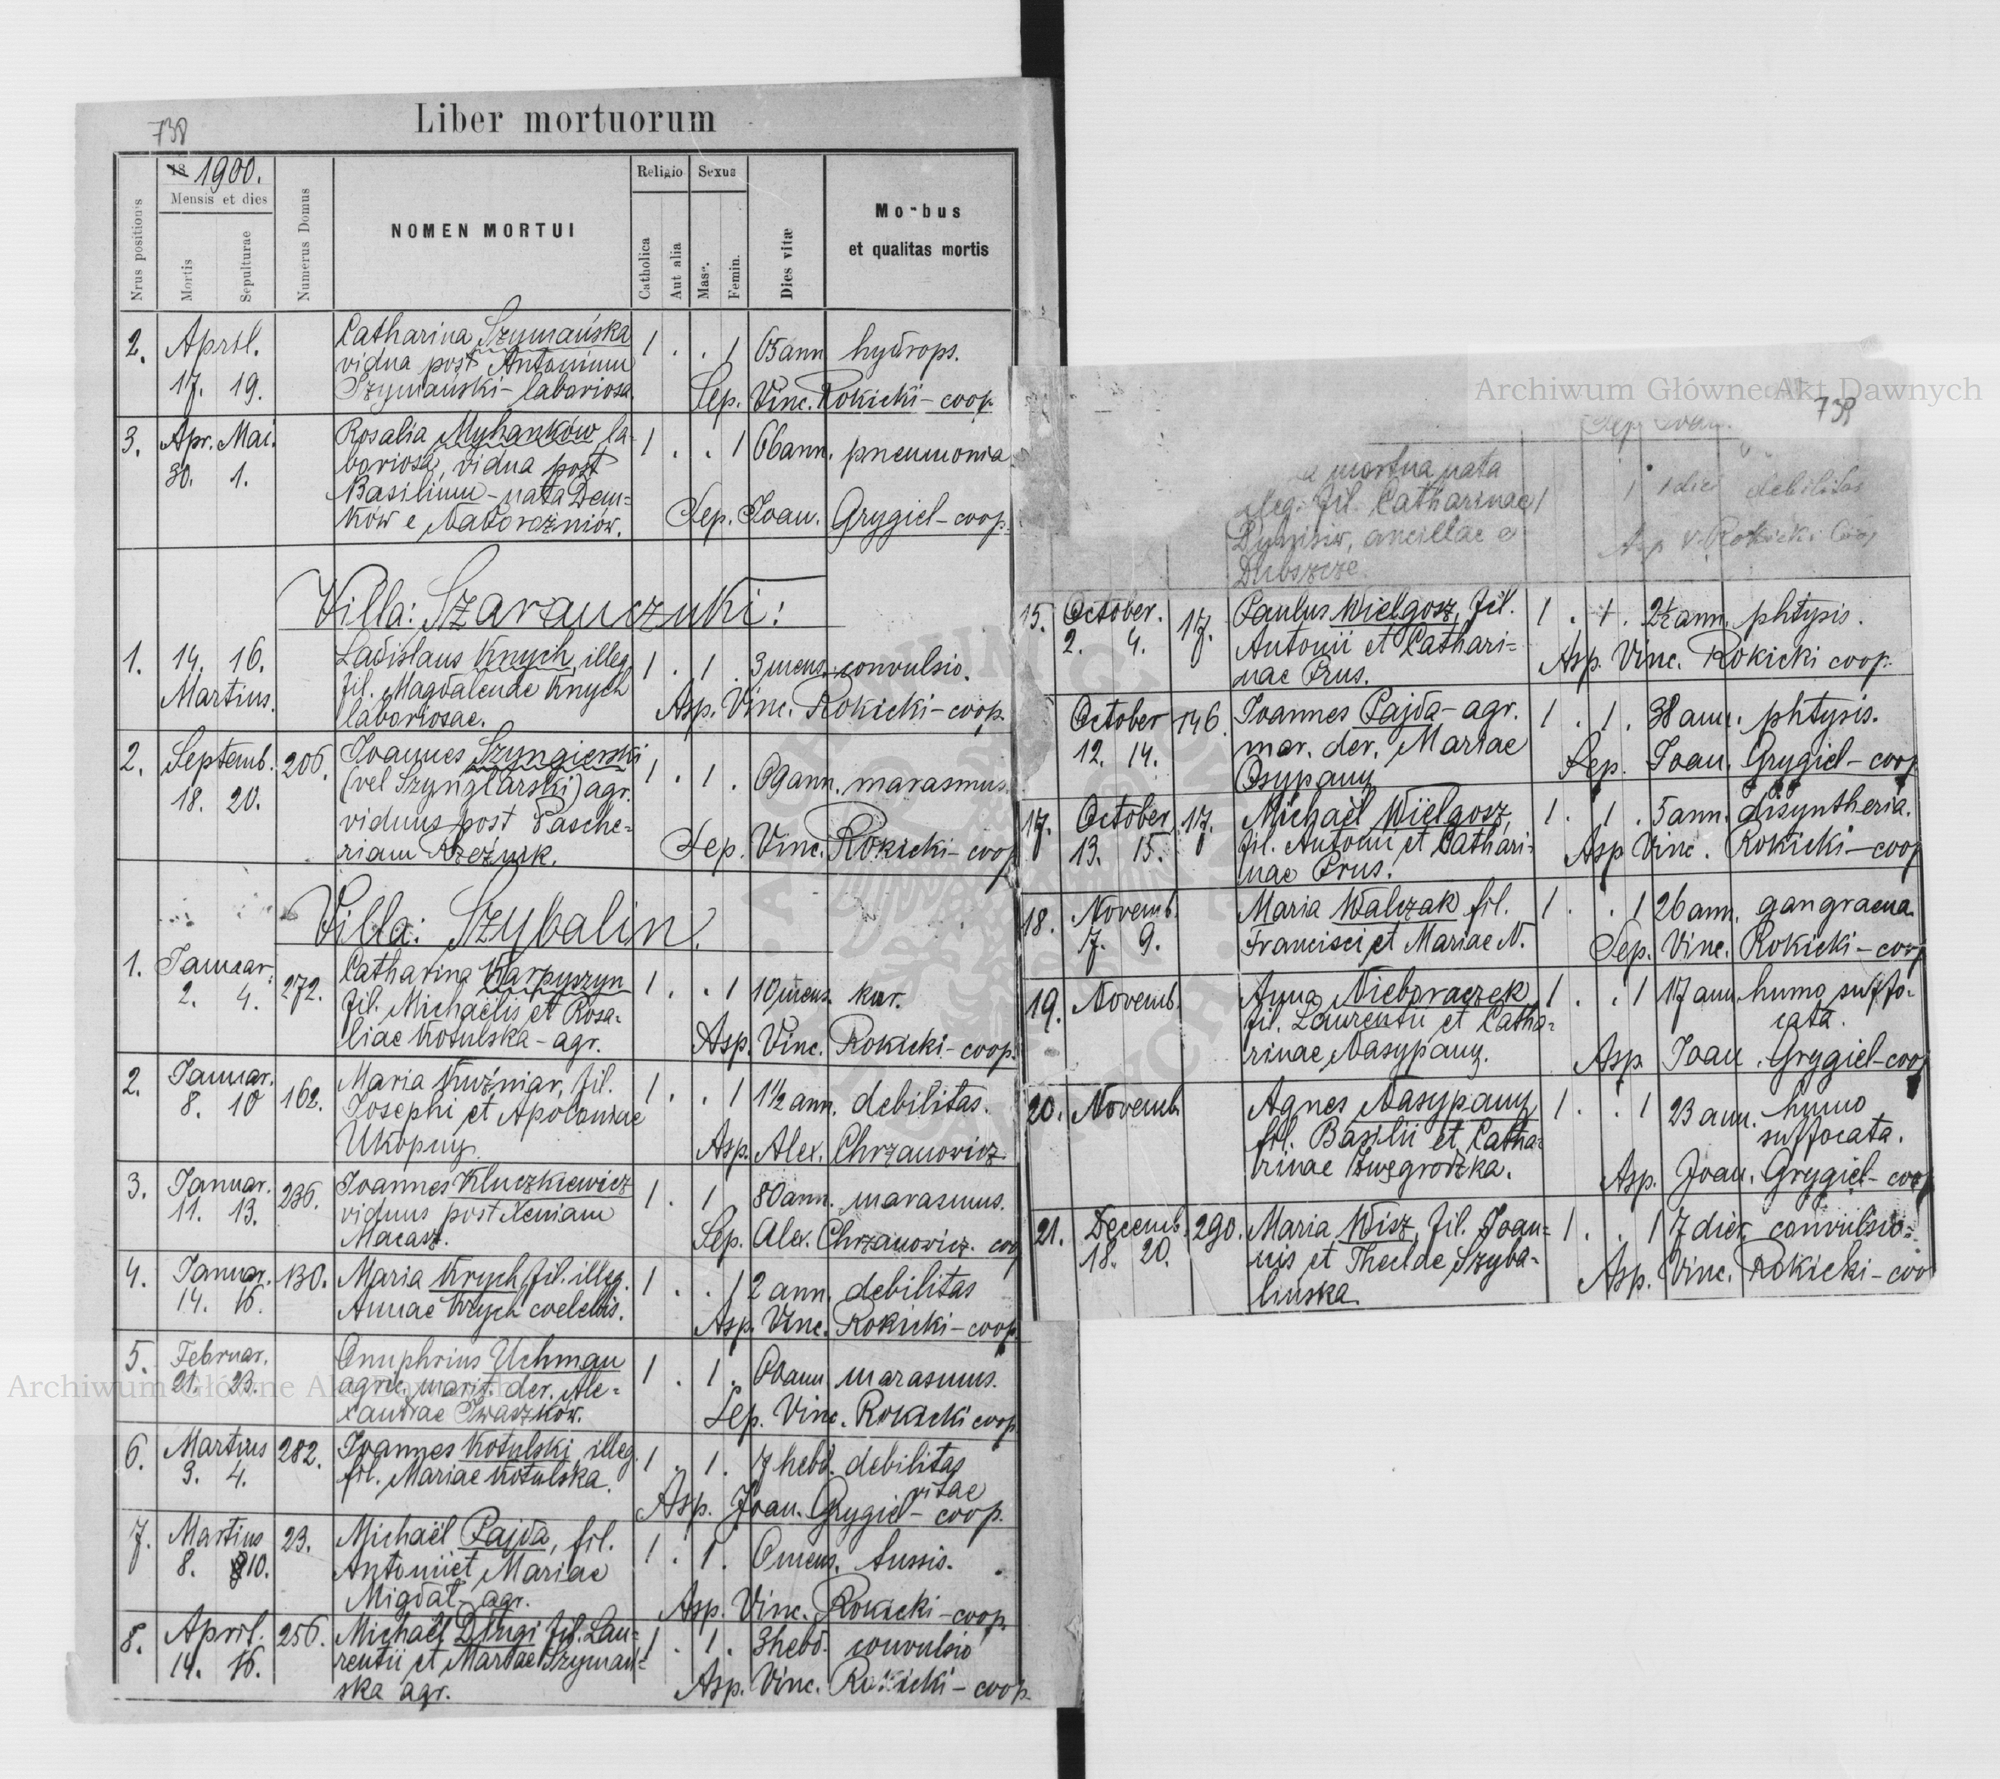 738
Liber mortuorum
Nrus positionis
18 1900.
Mensis et dies
Mortis
Sepulturae
Numerus Domus
NOMEN MORTUI
Religio
Catholica
Aut alia
Sexus
Masc.
Femin.
Dies vitæ
Morbus
et qualitas mortis
2. April. Catharina Szymańska 1 . . 1 65 ann hydrops.
17. 19. vidua post Antonium
Szymański - laboriosa. Sep. Vinc. Rokicki - coop.
3. Apr. Mai. Rosalia Myhanków la- 1 . . 1 66 ann. pneumonia
30. 1. boriosa, vidua post
Basilium - nata Dem-
ków e Naboroźniów. Sep. Joan. Grygiel - coop.
Villa: Szaranczuki:
1. 14. 16. Ladislaus Knych, illeg. 1 . 1 . 3 mens. convulsio.
Martius. fil. Magdalenae Knych
laboriosae. Asp. Vinc. Rokicki - coop.
2. Septemb. 206. Joannes Szyngierski 1 . 1 . 69 ann. marasmus.
18. 20. (vel Szynglarski) agr.
viduus post Pasche-
riam Rzeźnik. Sep. Vinc. Rokicki - coop
Villa: Szybalin.
1. Januar. 272. Catharina Karpyszyn 1 . . 1 10 mens. kur.
2. 4. fil. Michaëlis et Rosa-
liae Kotulska - agr. Asp. Vinc. Rokicki - coop.
2. Januar. 162. Maria Kuźniar, fil. 1 . . 1 1 1/2 ann. debilitas.
8. 10 Josephi et Apoloniae
Ukopny. Asp. Alex. Chrzanowicz
3. Januar. 236. Joannes Kluczkiewicz 1 . 1 80 ann. marasmus.
11. 13. viduus post Xeniam
Macasz. Sep. Alex. Chrzanowicz. coo
4. Januar. 130. Maria Krych, fil. illeg. 1 . . 1 2 ann. debilitas
14. 16. Annae Krych coelebis.
Asp. Vinc. Rokicki - coop.
5. Februar. Onuphrius Uchman 1 . 1 . 60 ann marasmus.
21. 23. agric. marit. der. Ale-
xandrae Iwaszków. Sep. Vinc. Rokicki coop
6. Martius 282. Joannes Kotulski, illeg. 1 . 1 . 17 hebd. debilitas
3. 4. fil. Mariae Kotulska. vitae
Asp. Joan. Grygiel - coop.
7. Martius 23. Michaël Pajda, fil. 1 . 1 . 6 mens. tussis.
8. 10. Antonii et Mariae
Migdał - agr. Asp. Vinc. Rokicki - coop.
8. April. 256. Michaël Długi fil. Lau- 1 . 1 . 3 hebd. convulsio
14. 16. rentii et Mariae Szymań-
ska agr. Asp. Vinc. Rokicki - coop.
Archiwum Główne Akt Dawnych
739
Sep. Joan.
a mortua nata 1 1 die debilitas
illeg. fil. Catharinae 1
ancillae e Asp V. Rokicki Coop
Dubszcze.
15. October. 17. Paulus Wielgosz, fil. 1 . 1 . 2 1/2 ann. phtysis.
2. 4. Antonii et Cathari-
nae Prus. Asp. Vinc. Rokicki coop.
October 146. Joannes Pajda - agr. 1 . 1 . 38 ann. phtysis.
12. 14. mar. der. Mariae
Osypany Sep. Joan. Grygiel - coop
17. October 17. Michaël Wielgosz, 1 . 1 . 5 ann. disyntheria.
13. 15. fil. Antonii et Cathari-
nae Prus. Asp Vinc. Rokicki - coop
18. Novemb. Maria Walczak fil. 1 . . 1 26 ann. gangraena.
7. 9. Francisci et Mariae N.
Sep. Vinc. Rokicki - coop
19. Novemb. Anna Nieboraczek, 1 . . 1 17 ann. humo suffo-
fil. Laurentii et Catha- cata.
rinae Nasypany. Asp. Joan. Grygiel - coop
20. Novemb. Agnes Nasypany 1 . . 1 23 ann. humo
fil. Basilii et Catha- suffocata.
rinae
Asp. Joan. Grygiel - coop
21. Decemb. 290. Maria Wisz, fil. Joan- 1 . . 1 7 dier. convulsio.
18. 20. nis et Theclae Szyba-
linska. Asp. Vinc. Rokicki - coo
Archiwum Główne Akt Dawnych
ARCHIWUM GŁÓWNE AKT DAWNYCH